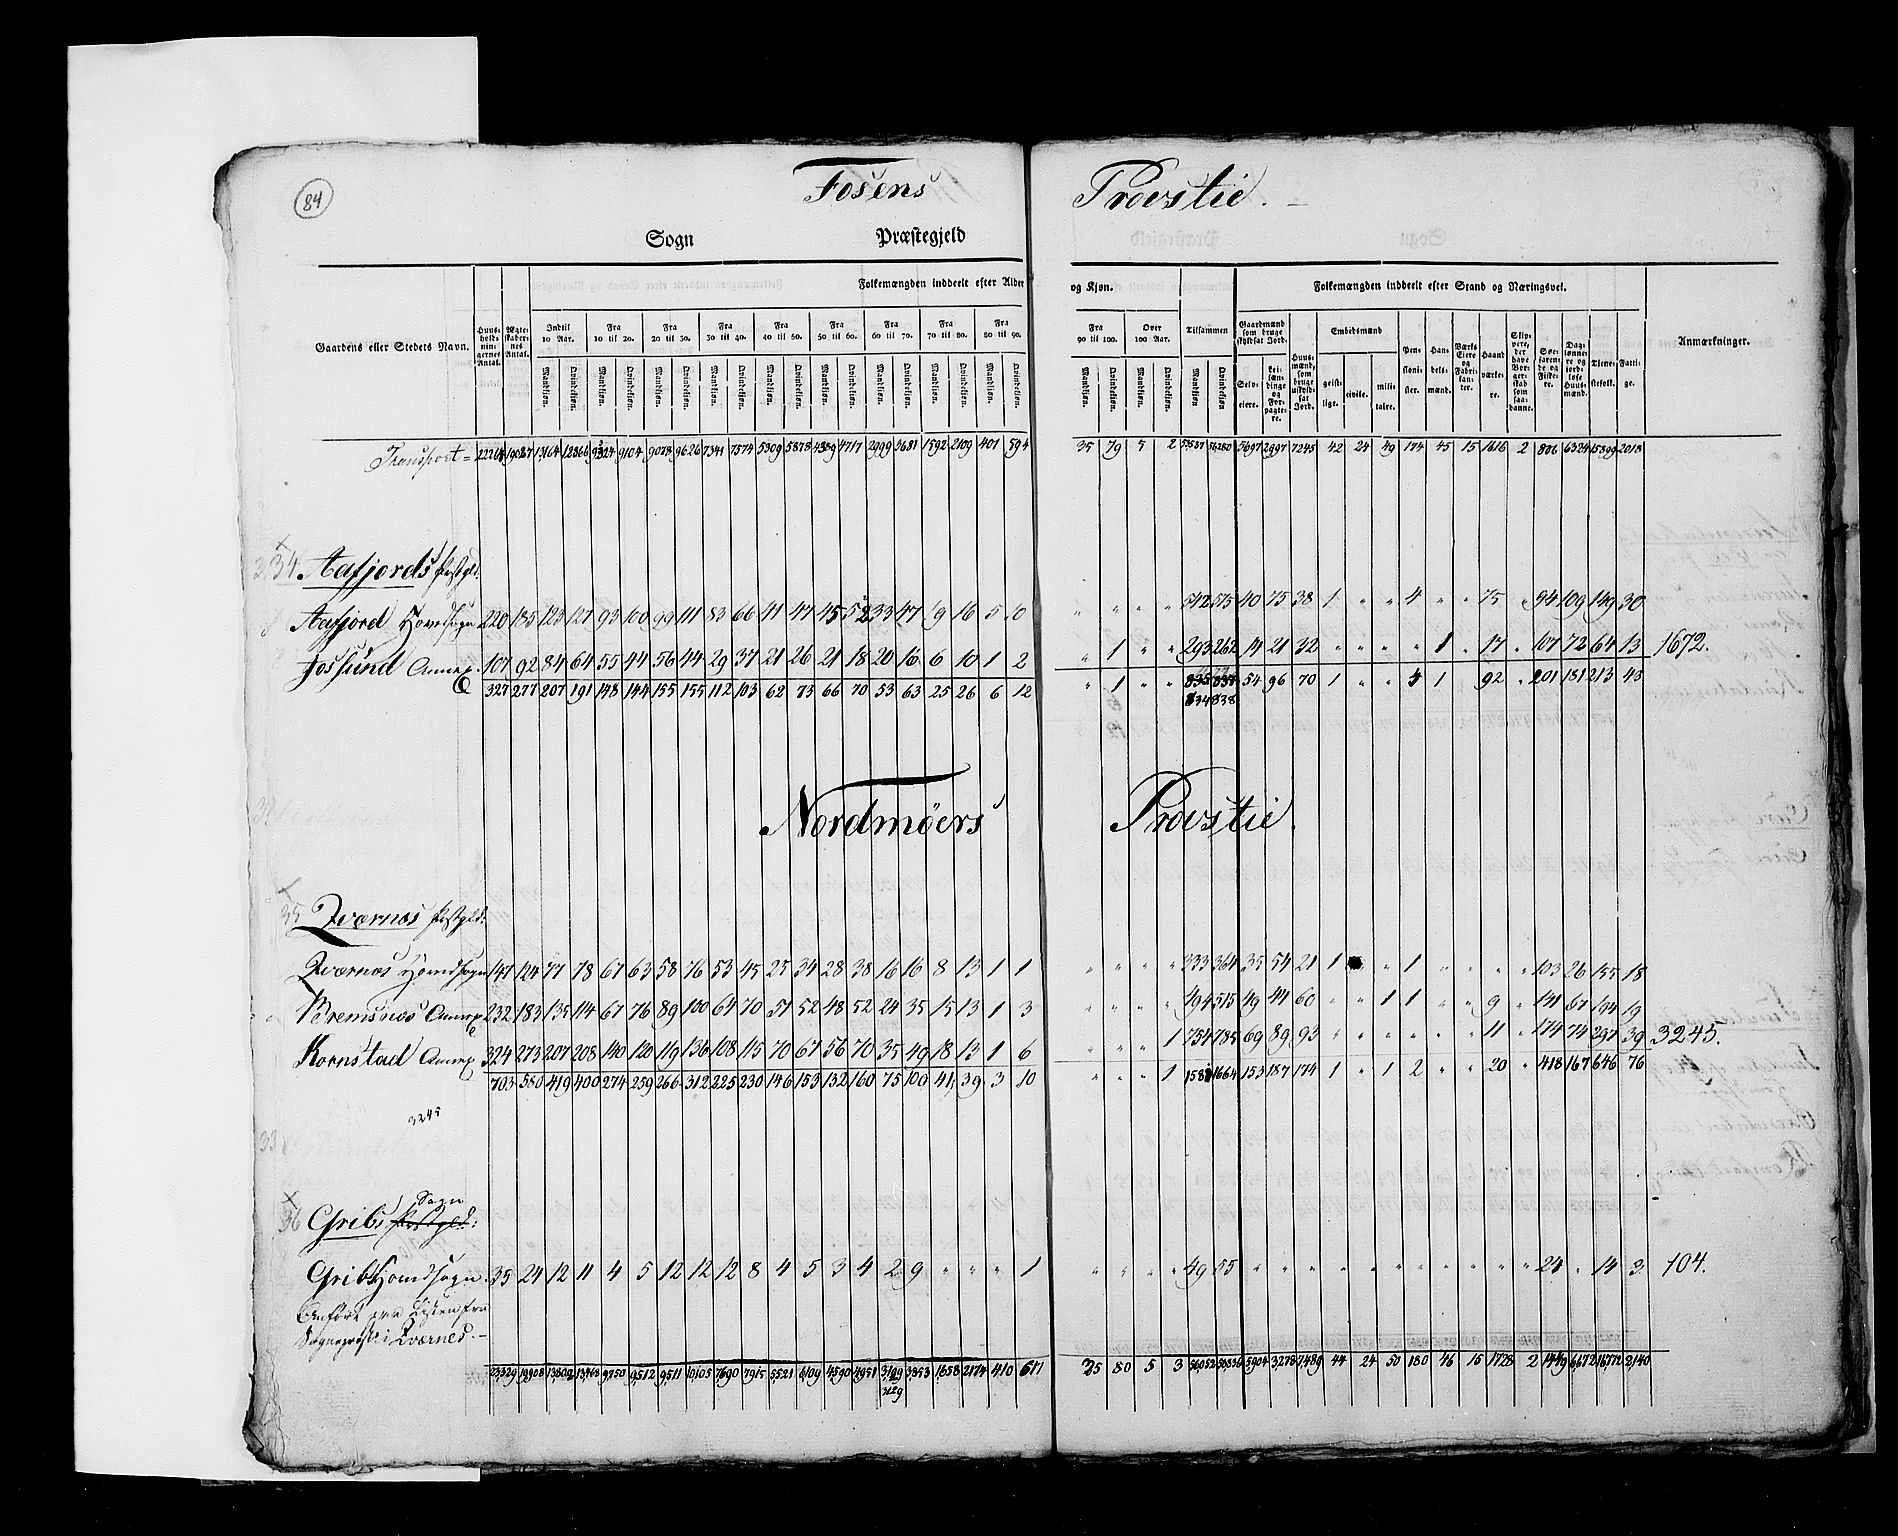 84
Fosens Provstie.
Sogn Præstegjeld
Gaardens eller Stedets Navn. Huusholdningernes Antal. Ægteskabernes Antal. Folkemængden inddeelt efter Alder og Kjøn. Tilsammen Folkemængden inddeelt efter Stand og Næringsvei. Anmærkninger.
Indtil 10 Aar. Fra 10 til 20. Fra 20 til 30. Fra 30 til 40. Fra 40 til 50. Fra 50 til 60. Fra 60 til 70. Fra 70 til 80. Fra 80 til 90. Fra 90 til 100. Over 100 Aar.
Gaardmænd som bruge skyldsat Jord. Huusmænd, som bruge uskyldsat Jord. Embedsmænd Pensionister. Handelsmænd. Værks Eiere og Fabrikanter. Haandværkere. Søefarende og Fiskere. Daglønnere og jordløse Huusmænd. Tienestefolk. Fattige.
Mandkiøn. Qvindekiøn. Selveiere. geistlige. civile. militaire.
Transport = 9104 9078 9626 7341 7574 5309 5878 4359 4717 2999 3681 1592 2109 401 594 35 79 5 2 5697 2997 7245 42 24 49 174 45 15 1616 2 6324 15899 2018
34 Aafjords Præstgld:
Aafjord Hovedsogn 220 185 123 127 93 100 99 111 83 66 41 47 45 52 33 47 19 16 5 10 " " " " 542 575 40 75 38 1 " " 4 " " 75 " 94 109 149 30
Jossund Annex 107 92 84 64 55 44 56 44 29 37 21 26 21 18 20 16 6 10 1 2 " 1 " " 293 262 14 21 32 " " " " 1 " 17 " 107 72 64 13 1672.
327 277 207 191 148 144 155 155 112 103 62 73 66 70 53 63 25 26 6 12 " 1 " " 54 96 70 1 " " 1 92 " 201 181 213 43
834 838
Nordmøers Provstie.
35 Qværnæs Præstgld:
Qværnæs Hovedsogn 147 124 77 78 67 63 58 76 53 45 25 34 28 38 16 16 8 13 1 1 " " " " 333 364 35 54 21 1 " 1 " " " " 103 26 155 18
Bremsnæs Annex 232 183 135 114 67 76 89 100 64 70 51 52 48 52 24 35 15 13 1 3 " " " " 494 515 49 44 60 " " 1 1 " " 9 " 141 67 194 19
Kornstad Annex 324 273 207 208 140 120 119 136 108 115 70 67 56 70 35 49 18 13 1 6 " " " 1 754 785 69 89 93 " " " " " " 11 " 174 74 297 39 3245.
703 580 419 400 274 259 266 312 225 230 146 153 132 160 75 100 41 39 3 10 " " " 1 1664 153 187 174 1 " 1 2 " " 20 " 418 167 646 76
3245
36 Grib Sogn
Grib Hovedsogn 35 24 12 11 4 5 12 12 12 8 4 5 3 4 2 9 " " " 1 " " " " 49 55 " " " " " " " " " " " 24 " 14 3 104.
Anført paa Listen fra
Sognepræst. i Qværnes.
23329 13468 9750 9512 9511 10105 7690 7915 5521 6109 4590 4951 3853 1658 2174 410 617 35 80 5 3 5904 3278 7489 44 24 50 180 46 15 1728 2 1449 6672 16772 2140